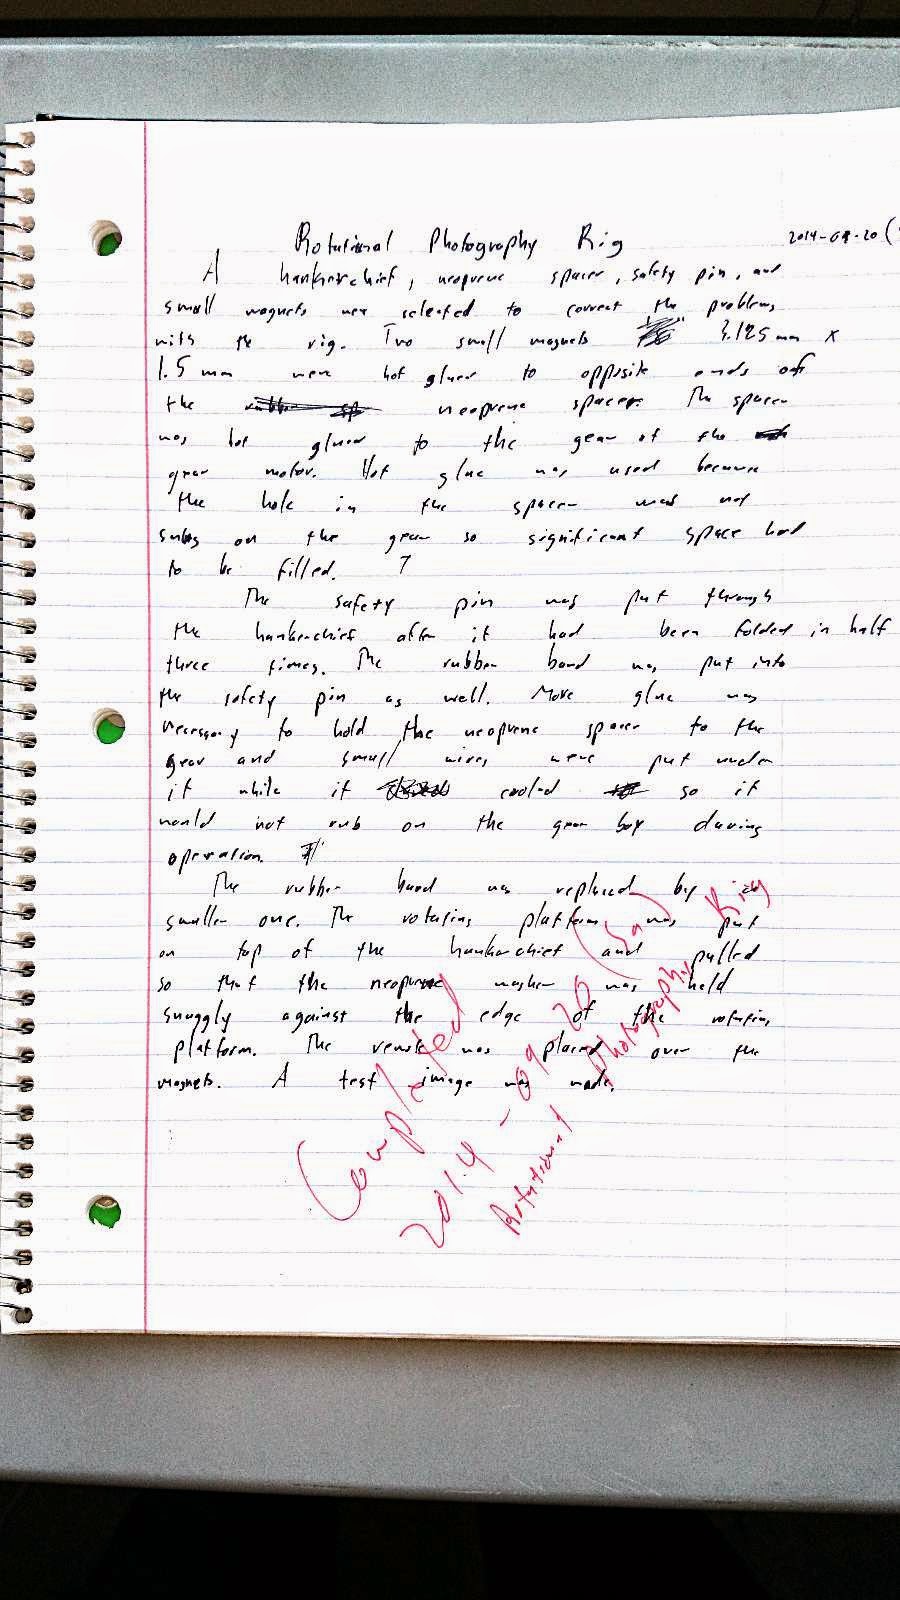 Rotational Photography Rig 2014-09-20 (
A hankerchief, neoprene spacer, safety pin, and
small magnets were selected to correct the problems
with the rig. Two small magnets 3.125 mm x
1.5 mm were hot glued to opposite ends of
the rubber sp neoprene spacer. The spacer
was hot glued to the gear of the
gear motor. Hot glue was used because
the hole in the spacer was not
snug on the gear so significant space had
to be filled.
The safety pin was put through
the hankerchief after it had been folded in half
three times. The rubber band was put into
the safety pin as well. More glue was
necessary to hold the neoprene spacer to the
gear and small wires were put under
it while it cooled so it
would not rub on the gear box during
operation.
The rubber band was replaced by a
smaller one. The rotating platform was put
on top of the hankerchief and pulled
so that the neoprene washer was held
snuggly against the edge of the rotating
platform. The remote was placed over the
magnets. A test image was made.
Completed
2014-09-20 (Sa)
Rotational Photography Rig